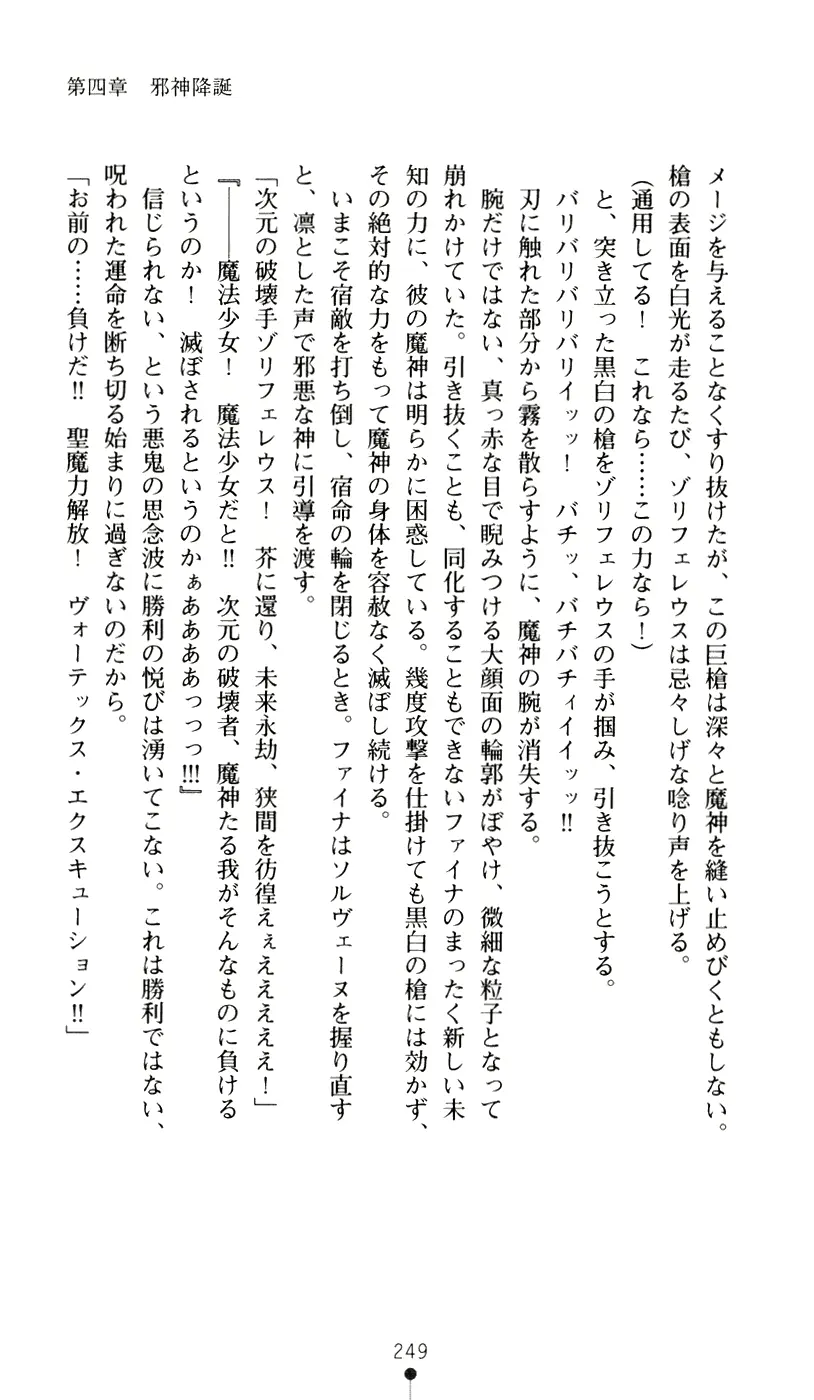 第四章　邪神降誕
メージを与えることなくすり抜けたが、この巨槍は深々と魔神を縫い止めびくともしない。
槍の表面を白光が走るたび、ゾリフェレウスは忌々しげな唸り声を上げる。
(通用してる！　これなら……この力なら！)
　と、突き立った黒白の槍をゾリフェレウスの手が掴み、引き抜こうとする。
　バリバリバリバリイッッ！　バチッ、バチバチィイイッッ!!
　刃に触れた部分から霧を散らすように、魔神の腕が消失する。
　腕だけではない、真っ赤な目で睨みつける大顔面の輪郭がぼやけ、微細な粒子となって
崩れかけていた。引き抜くことも、同化することもできないファイナのまったく新しい未
知の力に、彼の魔神は明らかに困惑している。幾度攻撃を仕掛けても黒白の槍には効かず、
その絶対的な力をもって魔神の身体を容赦なく滅ぼし続ける。
　いまこそ宿敵を打ち倒し、宿命の輪を閉じるとき。ファイナはソルヴェーヌを握り直す
と、凛とした声で邪悪な神に引導を渡す。
「次元の破壊手ゾリフェレウス！　芥に還り、未来永劫、狭間を彷徨えぇえええええ！」
『――魔法少女！　魔法少女だと!!　次元の破壊者、魔神たる我がそんなものに負ける
というのか！　滅ぼされるというのかぁああああっっっ!!!』
　信じられない、という悪鬼の思念波に勝利の悦びは湧いてこない。これは勝利ではない、
呪われた運命を断ち切る始まりに過ぎないのだから。
「お前の……負けだ!!　聖魔力解放！　ヴォーテックス・エクスキューション!!」
249